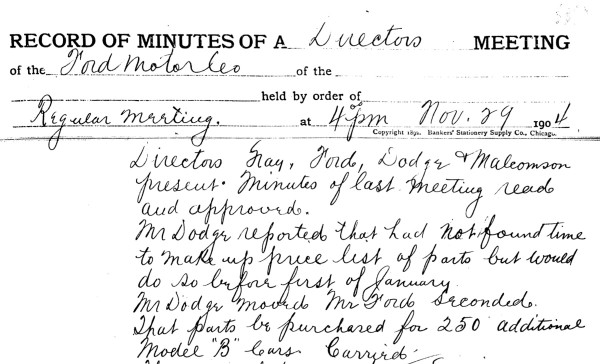 RECORD OF MINUTES OF A Directors MEETING
of the Ford Motor Co of the
held by order of
Regular Meeting. at 4 pm Nov. 29 1904
Copyright 1892, Bankers' Stationery Supply Co., Chicago.
Directors Gray, Ford, Dodge & Malcomson
present. Minutes of last meeting read
and approved.
Mr Dodge reported that had not found time
to make up price list of parts but would
do so before first of January
Mr Dodge moved Mr Ford seconded.
That parts be purchased for 250 additional
Model "B" Cars Carried.